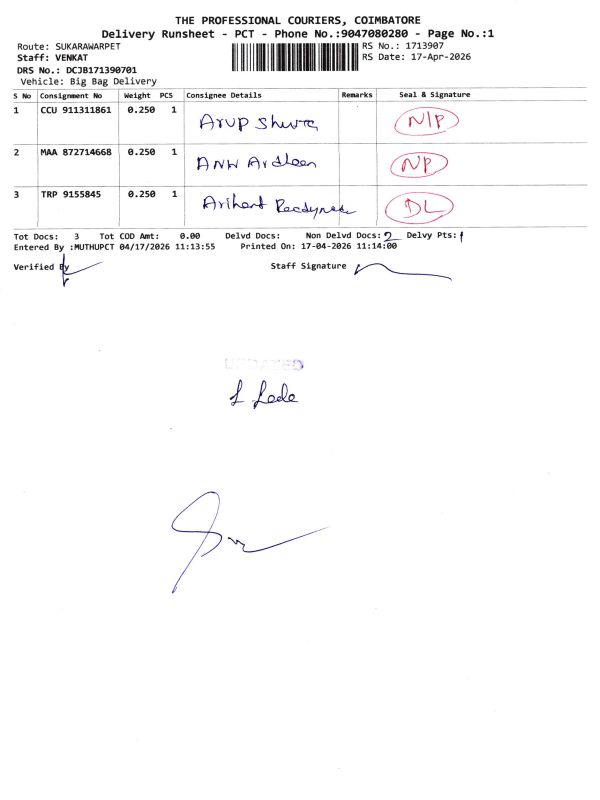 THE PROFESSIONAL COURIERS, COIMBATORE
Delivery Runsheet - PCT - Phone No.:9047080280 - Page No.:1
Route: SUKARAWARPET RS No.: 1713907
Staff: VENKAT RS Date: 17-Apr-2026
DRS No.: DCJB171390701
Vehicle: Big Bag Delivery
S No Consignment No Weight PCS Consignee Details Remarks Seal & Signature
1 CCU 911311861 0.250 1 Arup N/P
2 MAA 872714668 0.250 1 ANN NP
3 TRP 9155845 0.250 1 Arihant DL
Tot Docs: 3 Tot COD Amt: 0.00 Delvd Docs: Non Delvd Docs: 2 Delvy Pts: 1
Entered By :MUTHUPCT 04/17/2026 11:13:55 Printed On: 17-04-2026 11:14:00
Verified By Staff Signature
UPDATED